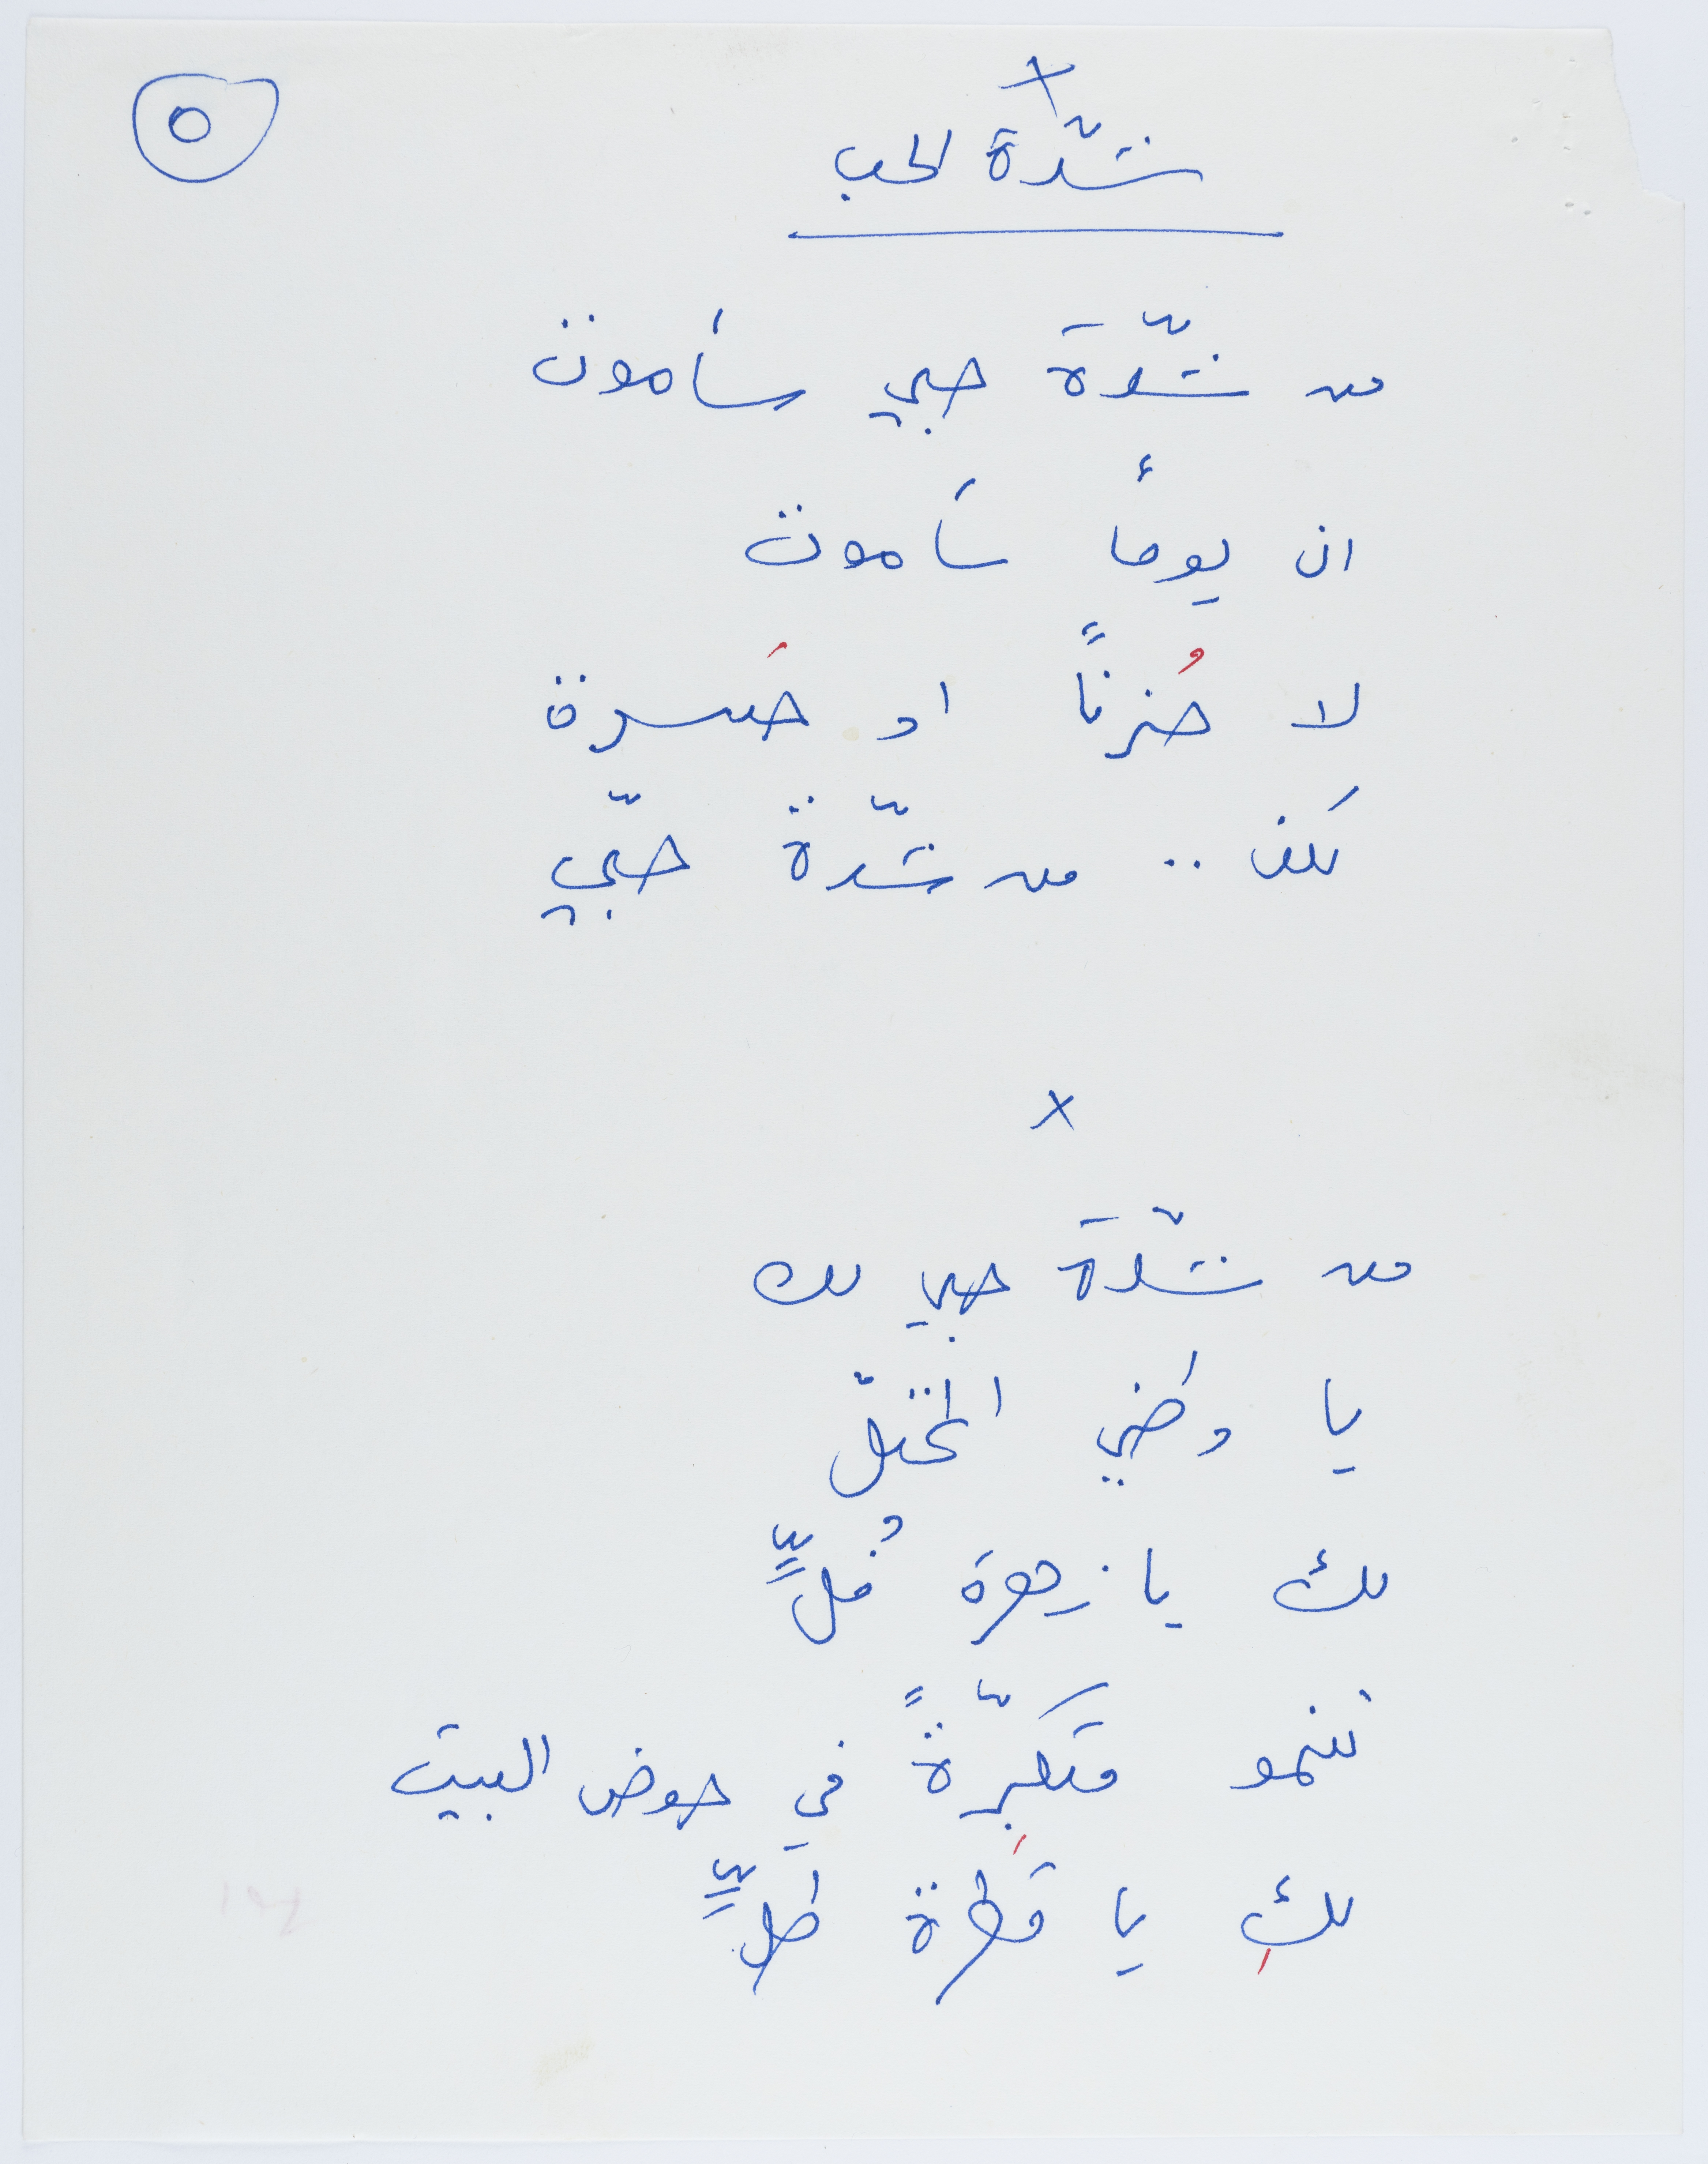 ٥
×
شدّة الحب
من شدّةَ حبي سأموت
ان يوماً سأموت
لا حُزناً او حَسرة
لكن .. من شدّة حبّي
×
من شدّةَ حبي لك
يا وطني المحتلّ
لك يا زهرة فُلٍّ
تنمو متكبِّرّةً في حوض البيت
لكِ يا قطرة طلٍّ